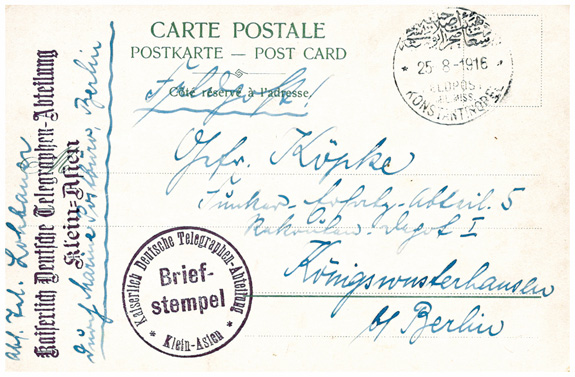 CARTE POSTALE
POSTKARTE — POST CARD
Côté réservé à l'adresse.
Feldpost!
25 8-1916
KONSTANTINOPEL
Gefr. Köpke
Funker-Abteil. 5
Rekruten-Depot I
Königswusterhausen
b/ Berlin
Kaiserlich Deutsche Telegraphen-Abteilung
Klein-Asien
Brief-
stempel
Kaiserlich Deutsche Telegraphen-Abteilung
Klein-Asien
durch Marine Postbüro, Berlin
Abs.